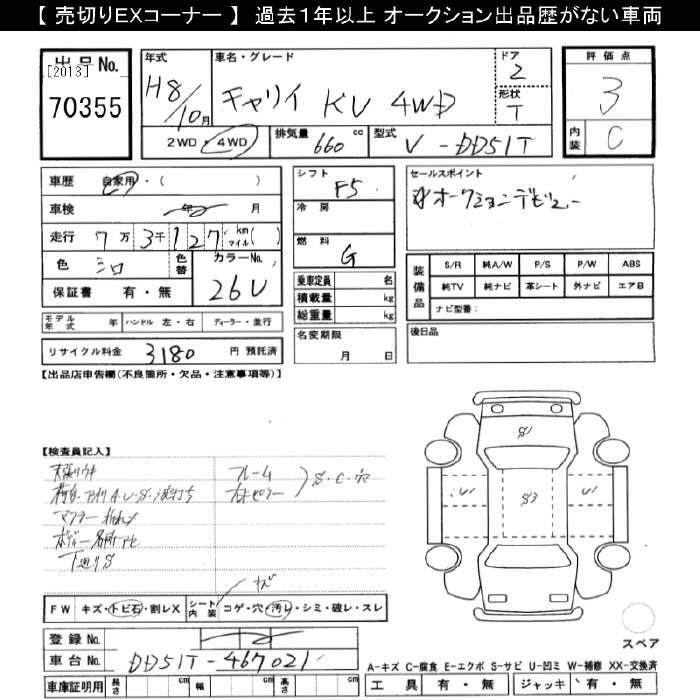 【 売切りEXコーナー 】 過去1年以上 オークション出品歴がない車両
出品No.
[2013]
70355
年式
H8/10月
車名・グレード
キャリイ KU 4WD
ドア
2
形状
T
評価点
3
内装
C
2WD・4WD
排気量 660 cc
型式 V-DD51T
車歴 自家用・( )
車検 年 月
走行 7万3千127 km マイル( )
色 シロ
色替
カラーNo.
26U
保証書 有・無
シフト
F5
冷房
燃料
G
乗車定員 名
積載量 kg
総重量 kg
セールスポイント
オークションデビュー
装備品
S/R 純A/W P/S P/W ABS
純TV 純ナビ 革シート 外ナビ エアB
ナビ型番:
モデル年式 年
ハンドル 左・右
ディーラー・並行
名変期限
月 日
後日品
リサイクル料金 3180 円 預託済
【出品店申告欄(不良箇所・欠品・注意事項等)】
【検査員記入】
フレーム
S・C・穴
マフラー
下廻りS
FW キズ・トビ石・割レX
シート内装 コゲ・穴・汚レ・シミ・破レ・スレ
登録No.
車台No. DD51T-467021
車庫証明用 長さ cm 幅 cm 高さ cm
スペア
A-キズ C-腐食 E-エクボ S-サビ U-凹ミ W-補修 XX-交換済
工具 有・無 ジャッキ 有・無